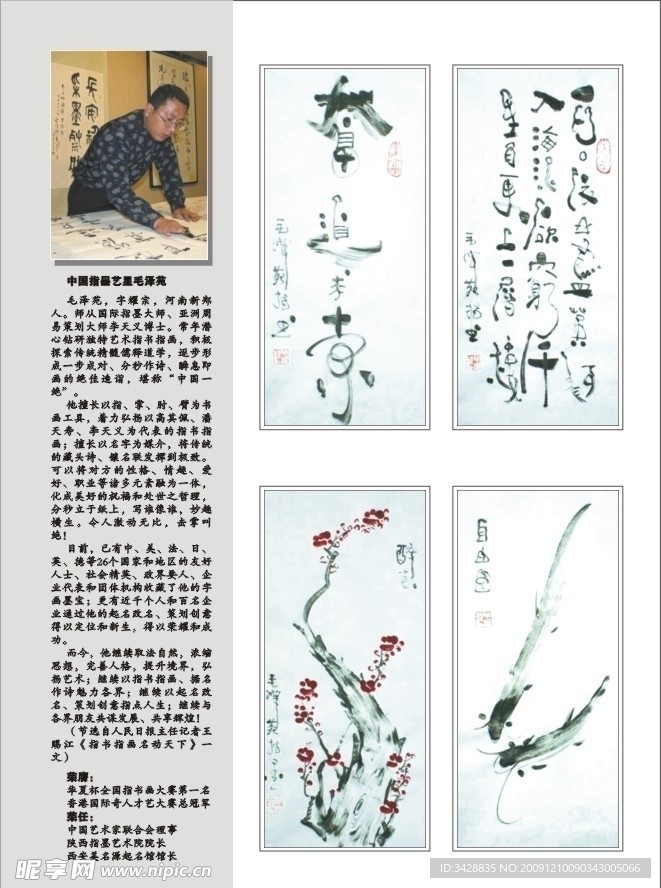 中国指墨艺星毛泽苑
毛泽苑，字耀宗，河南新郑
人。师从国际指墨大师、亚洲周
易策划大师李天义博士。常年潜
心钻研独特艺术指书指画，积极
探索传统精髓儒释道学，逐步形
成一步成对、分秒作诗、瞬息即
画的绝佳造诣，堪称“中国一
绝”。
他擅长以指、掌、肘、臂为书
画工具，着力弘扬以高其佩、潘
天寿、李天义为代表的指书指
画；擅长以名字为媒介，将传统
的藏头诗、镶名联发挥到极致。
可以将对方的性格、情趣、爱
好、职业等诸多元素融为一体，
化成美好的祝福和处世之哲理，
分秒立于纸上，写谁像谁，妙趣
横生。令人激动无比，击掌叫
绝！
目前，已有中、美、法、日、
英、德等26个国家和地区的友好
人士、社会精英、政界要人、企
业代表和团体机构收藏了他的字
画墨宝；更有近千个人和百名企
业通过他的起名改名、策划创意
得以定位和新生，得以荣耀和成
功。
而今，他继续取法自然，浓缩
思想，完善人格，提升境界，弘
扬艺术；继续以指书指画、据名
作诗魅力各界；继续以起名改
名、策划创意指点人生；继续与
各界朋友共谋发展、共享辉煌！
（节选自人民日报主任记者王
赐江《指书指画名动天下》一
文）
荣膺：
华夏杯全国指书画大赛第一名
香港国际奇人才艺大赛总冠军
荣任：
中国艺术家联合会理事
陕西指墨艺术院院长
西安美名源起名馆馆长
毛泽苑指书
更上一层楼
毛泽苑指书
醉
毛泽苑指
自由
昵享网 www.nipic.cn
ID:3428835 NO:20091210090343005066